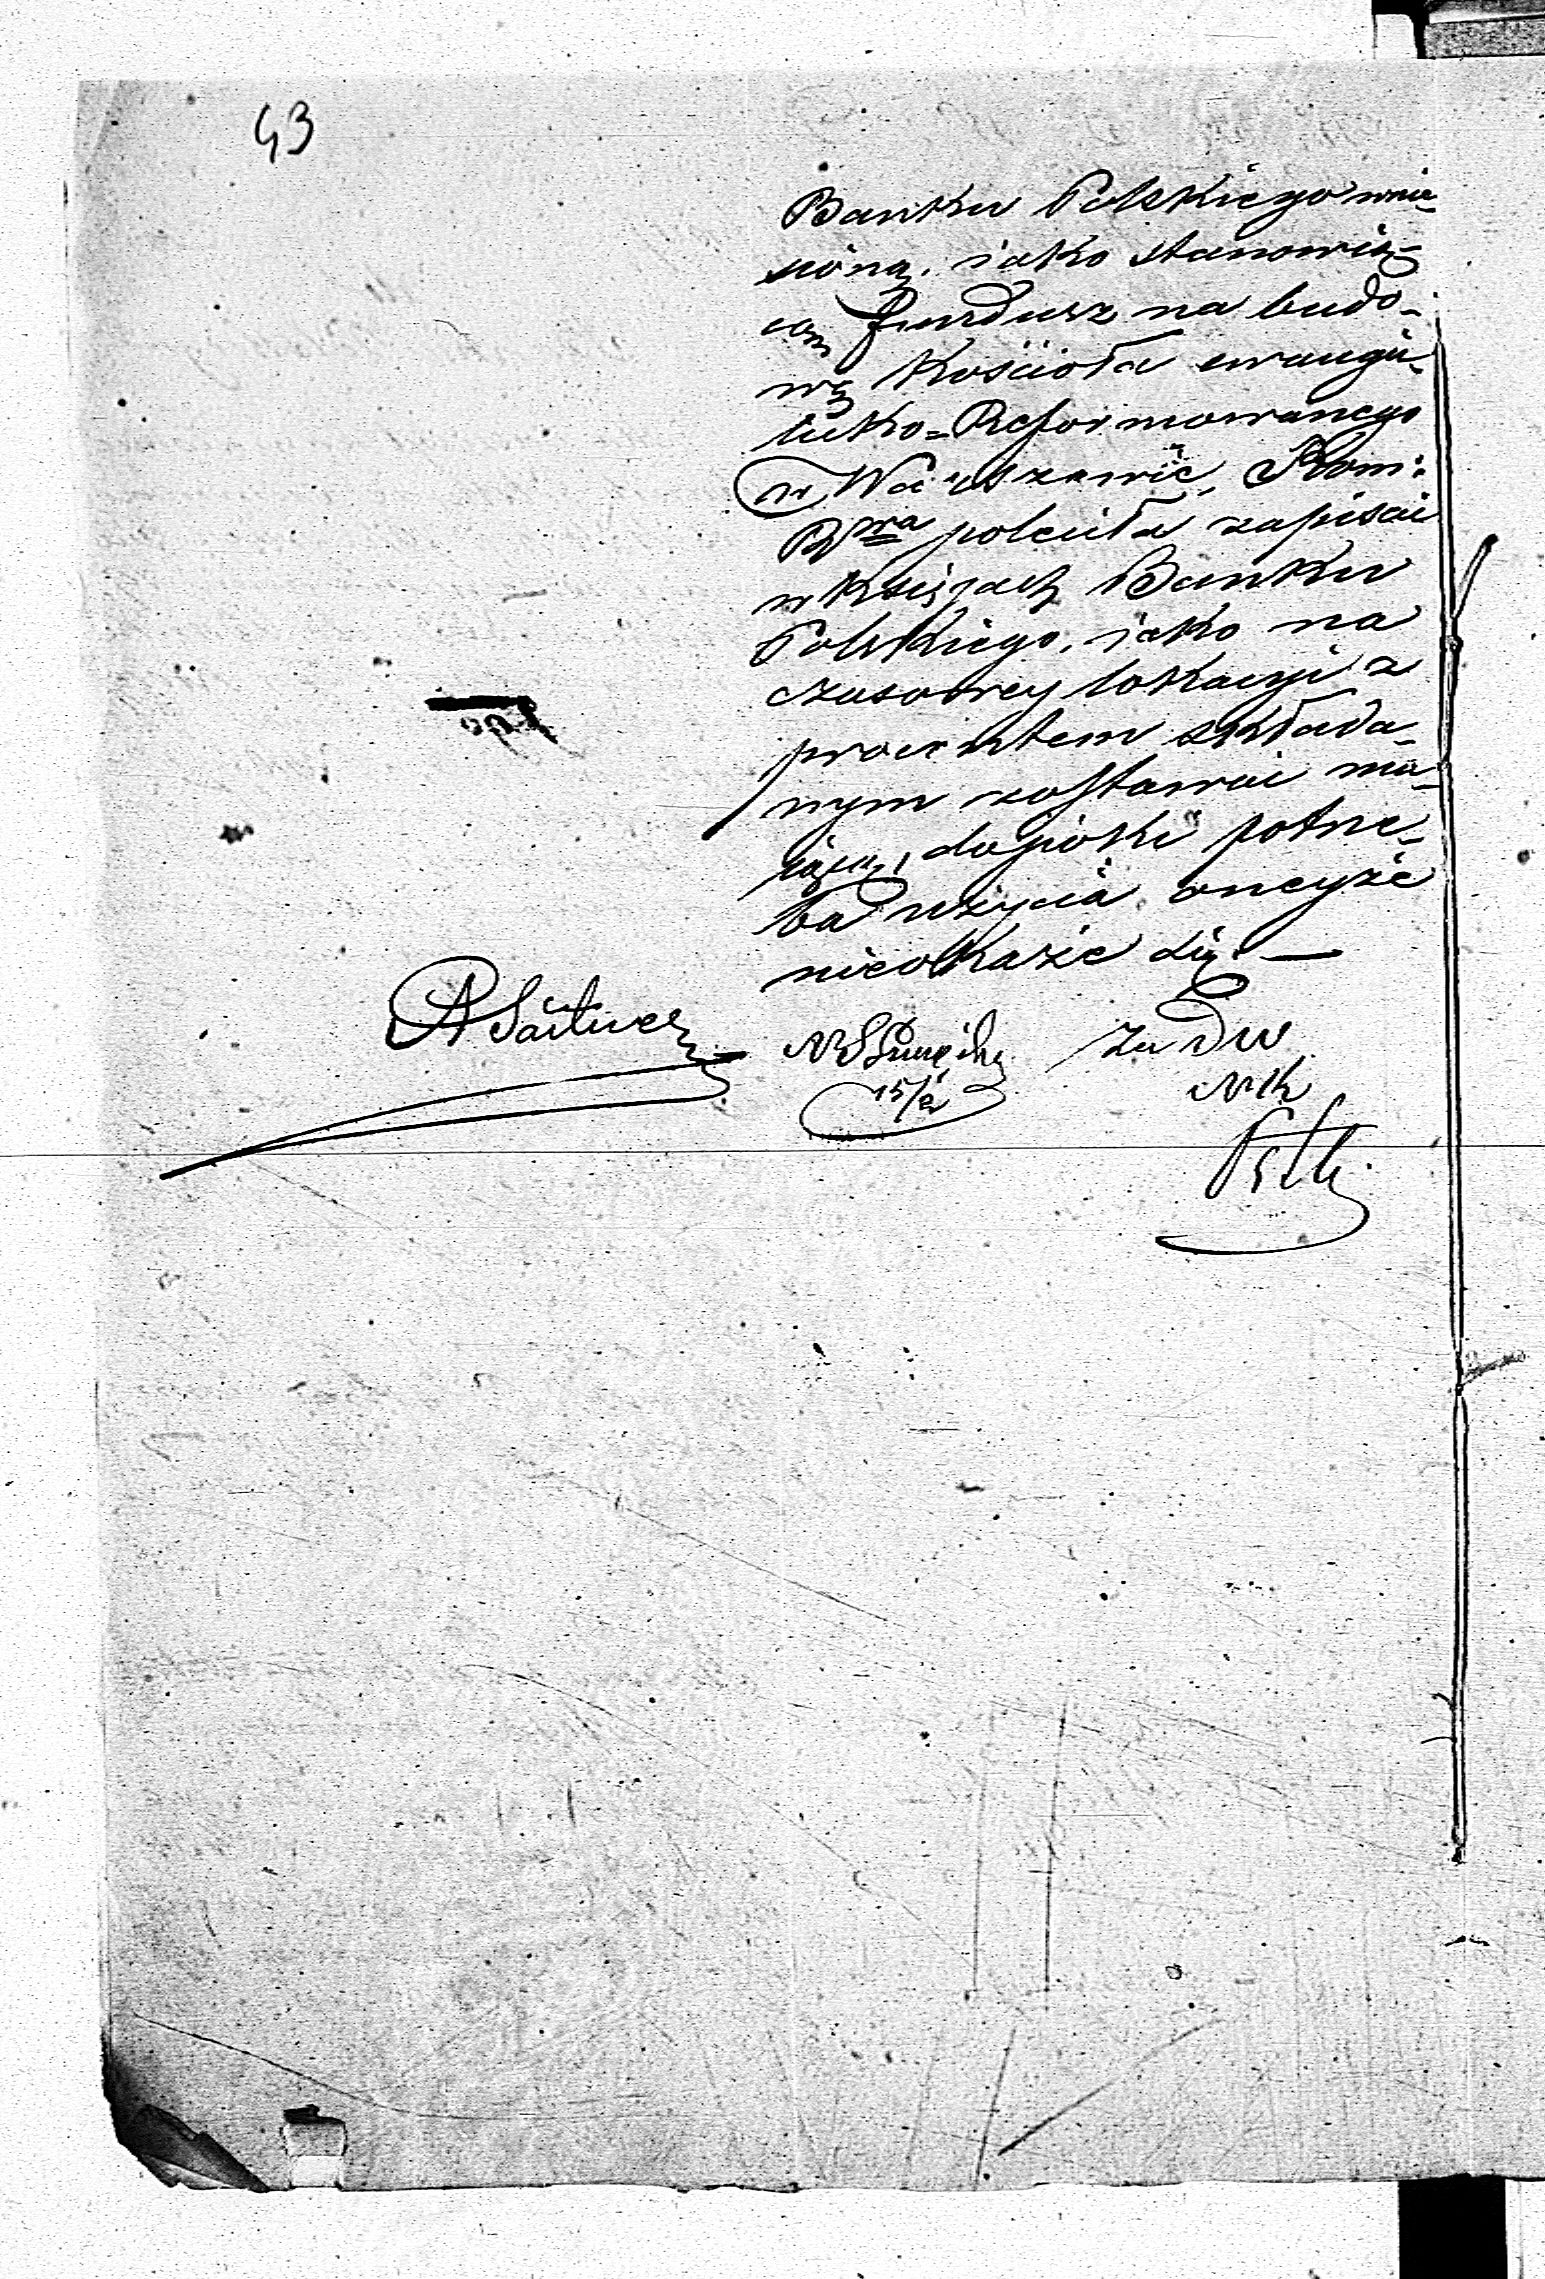 43
Banku Polskiego wnie-
sioną, iako stanowią-
cą fundusz na budo-
wę Kościoła ewangie-
licko=Reformowanego
w Warszawie, Kom:
Rwa poleciła zapisać
w Księgach Banku
Polskiego, iako na
czasowey lokacyi z
procentem składa-
nym zostawać ma-
iącą, dopóki potrze-
ba użycia oneyże
nieokaże się. —
za Dw
15/2